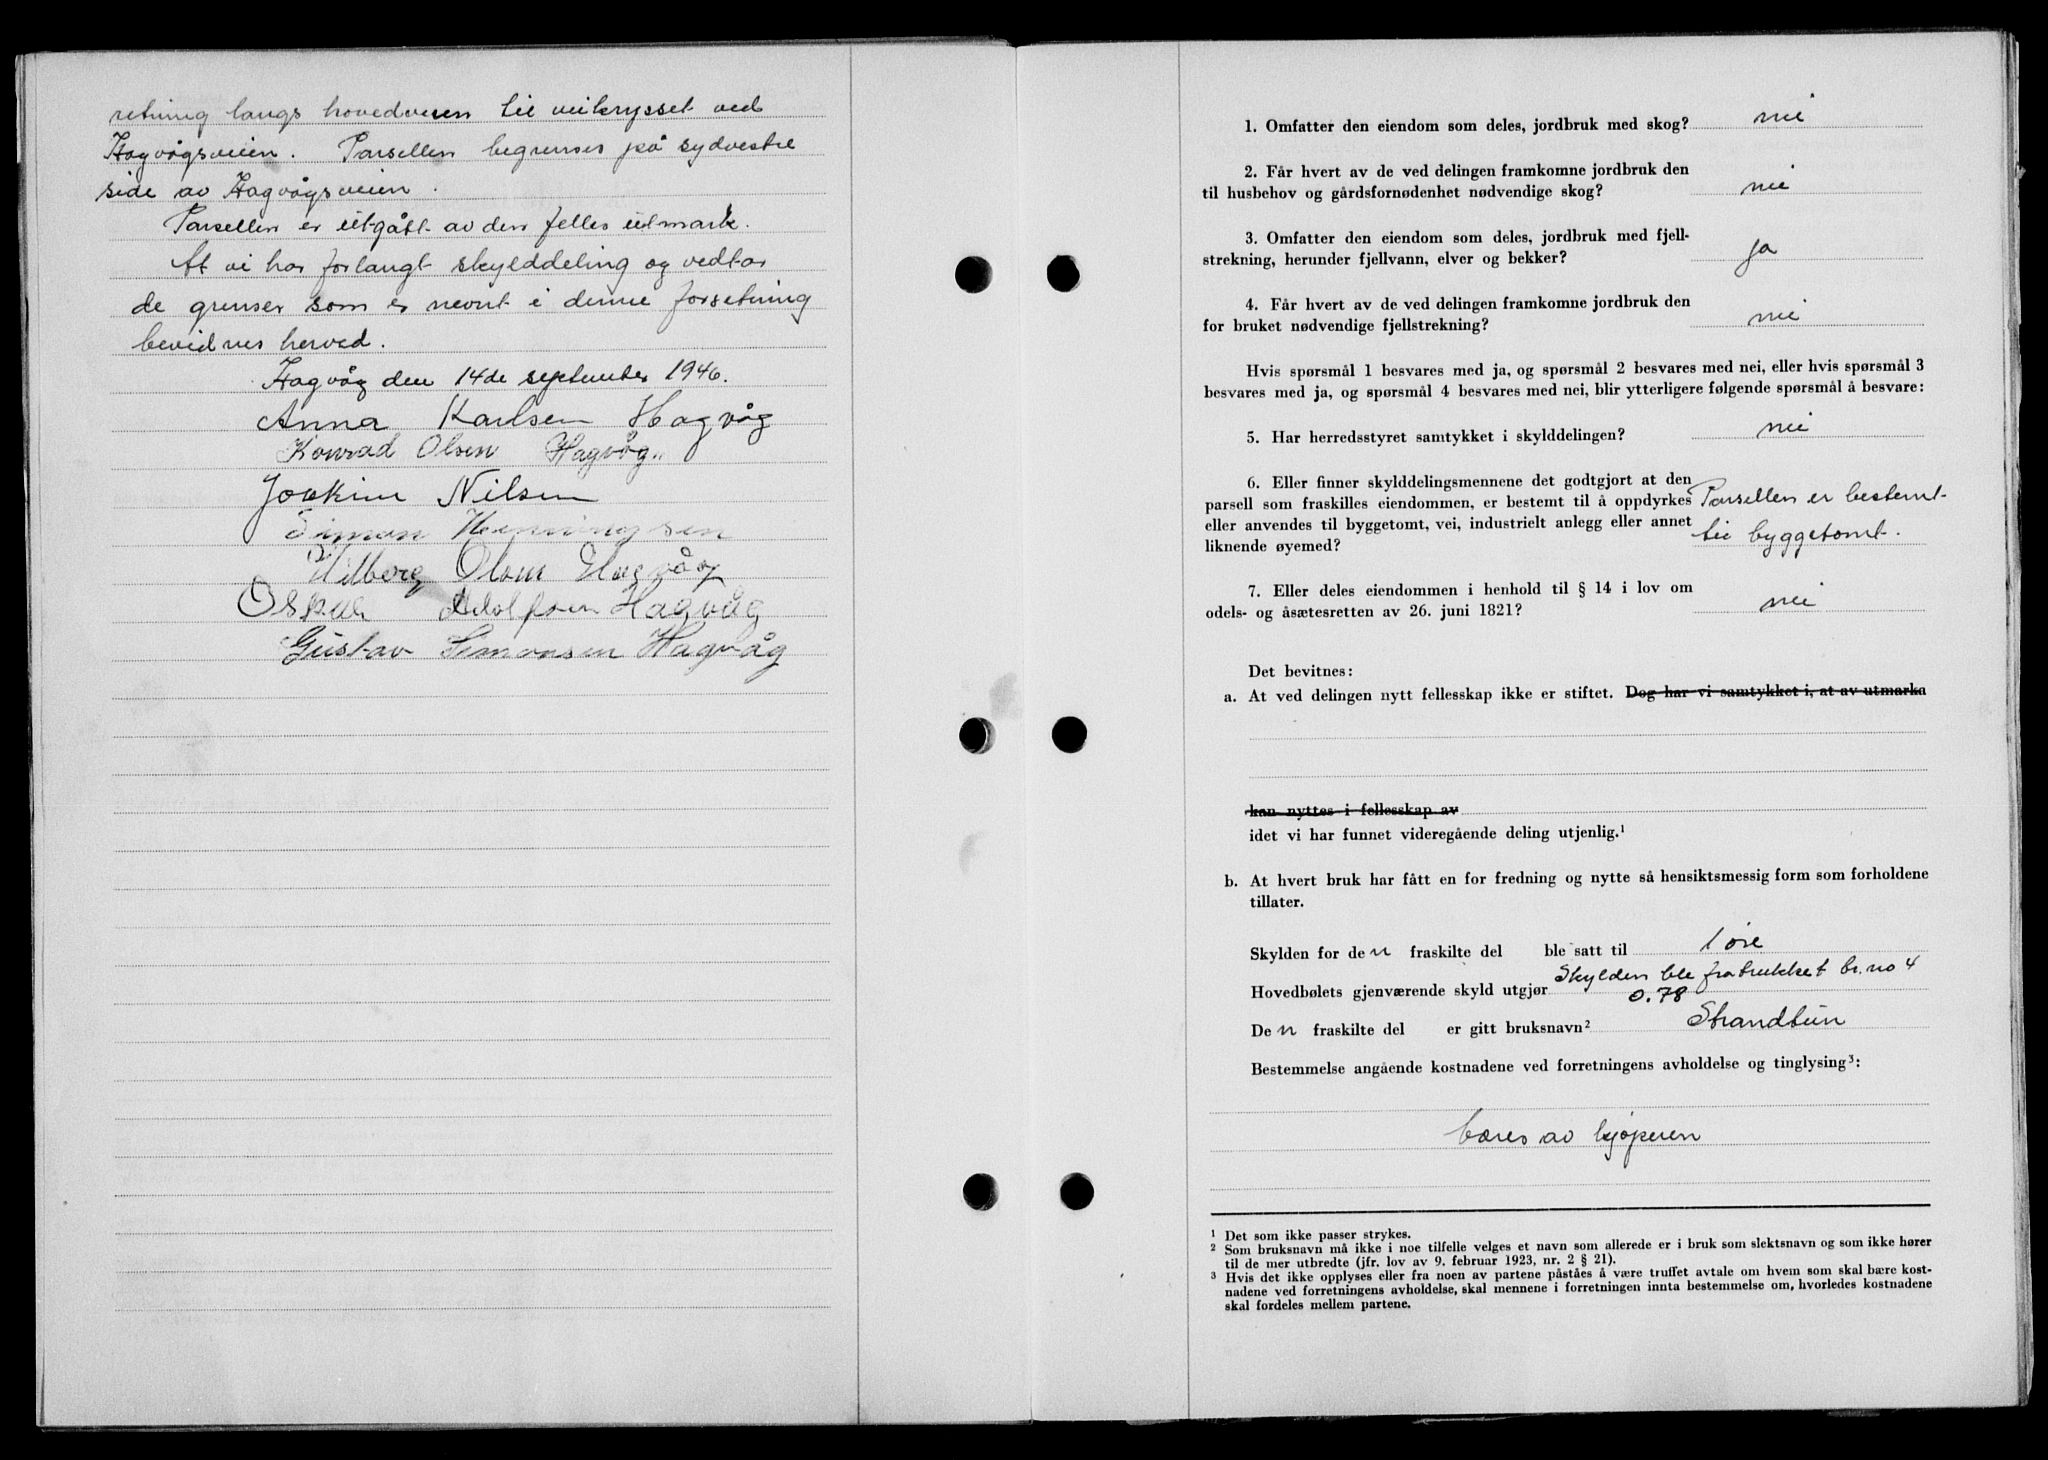 retning langs hovedveien til veikrysset ved
Hagvågsveien. Parsellen begrenses på sydvestre
side av Hagvågsveien.
Parsellen er utgått av den felles utmark.
At vi har forlangt skylddeling og vedtar
de grenser som er nevnt i denne forretning
bevidnes herved.
Hagvåg den 14de september 1946.
Anna Karlsen Hagvåg
Konrad Olsen Hagvåg.
Joakim Nilsen
Simon Henningsen
Olsen Hagvåg
Oskar Adolfsen Hagvåg
Gustav Simonsen Hagvåg
1. Omfatter den eiendom som deles, jordbruk med skog? nei
2. Får hvert av de ved delingen framkomne jordbruk den
til husbehov og gårdsfornødenhet nødvendige skog? nei
3. Omfatter den eiendom som deles, jordbruk med fjell-
strekning, herunder fjellvann, elver og bekker? ja
4. Får hvert av de ved delingen framkomne jordbruk den
for bruket nødvendige fjellstrekning? nei
Hvis spørsmål 1 besvares med ja, og spørsmål 2 besvares med nei, eller hvis spørsmål 3
besvares med ja, og spørsmål 4 besvares med nei, blir ytterligere følgende spørsmål å besvare:
5. Har herredsstyret samtykket i skylddelingen? nei
6. Eller finner skylddelingsmennene det godtgjort at den
parsell som fraskilles eiendommen, er bestemt til å oppdyrkes Parsellen er bestemt
eller anvendes til byggetomt, vei, industrielt anlegg eller annet
liknende øyemed? til byggetomt.
7. Eller deles eiendommen i henhold til § 14 i lov om
odels- og åsætesretten av 26. juni 1821? nei
Det bevitnes:
a. At ved delingen nytt fellesskap ikke er stiftet. Dog har vi samtykket i, at av utmarka
kan nyttes i fellesskap av
idet vi har funnet videregående deling utjenlig.¹
b. At hvert bruk har fått en for fredning og nytte så hensiktsmessig form som forholdene
tillater.
Skylden for den fraskilte del ble satt til 1 øre
Skylden ble fratrukket br. no 4
Hovedbølets gjenværende skyld utgjør 0.78
Den fraskilte del er gitt bruksnavn² Strandtun
Bestemmelse angående kostnadene ved forretningens avholdelse og tinglysing³:
bæres av kjøperen
¹ Det som ikke passer strykes.
² Som bruksnavn må ikke i noe tilfelle velges et navn som allerede er i bruk som slektsnavn og som ikke hører
til de mer utbredte (jfr. lov av 9. februar 1923, nr. 2 § 21).
³ Hvis det ikke opplyses eller fra noen av partene påståes å være truffet avtale om hvem som skal bære kost-
nadene ved forretningens avholdelse, skal mennene i forretningen innta bestemmelse om, hvorledes kostnadene
skal fordeles mellem partene.